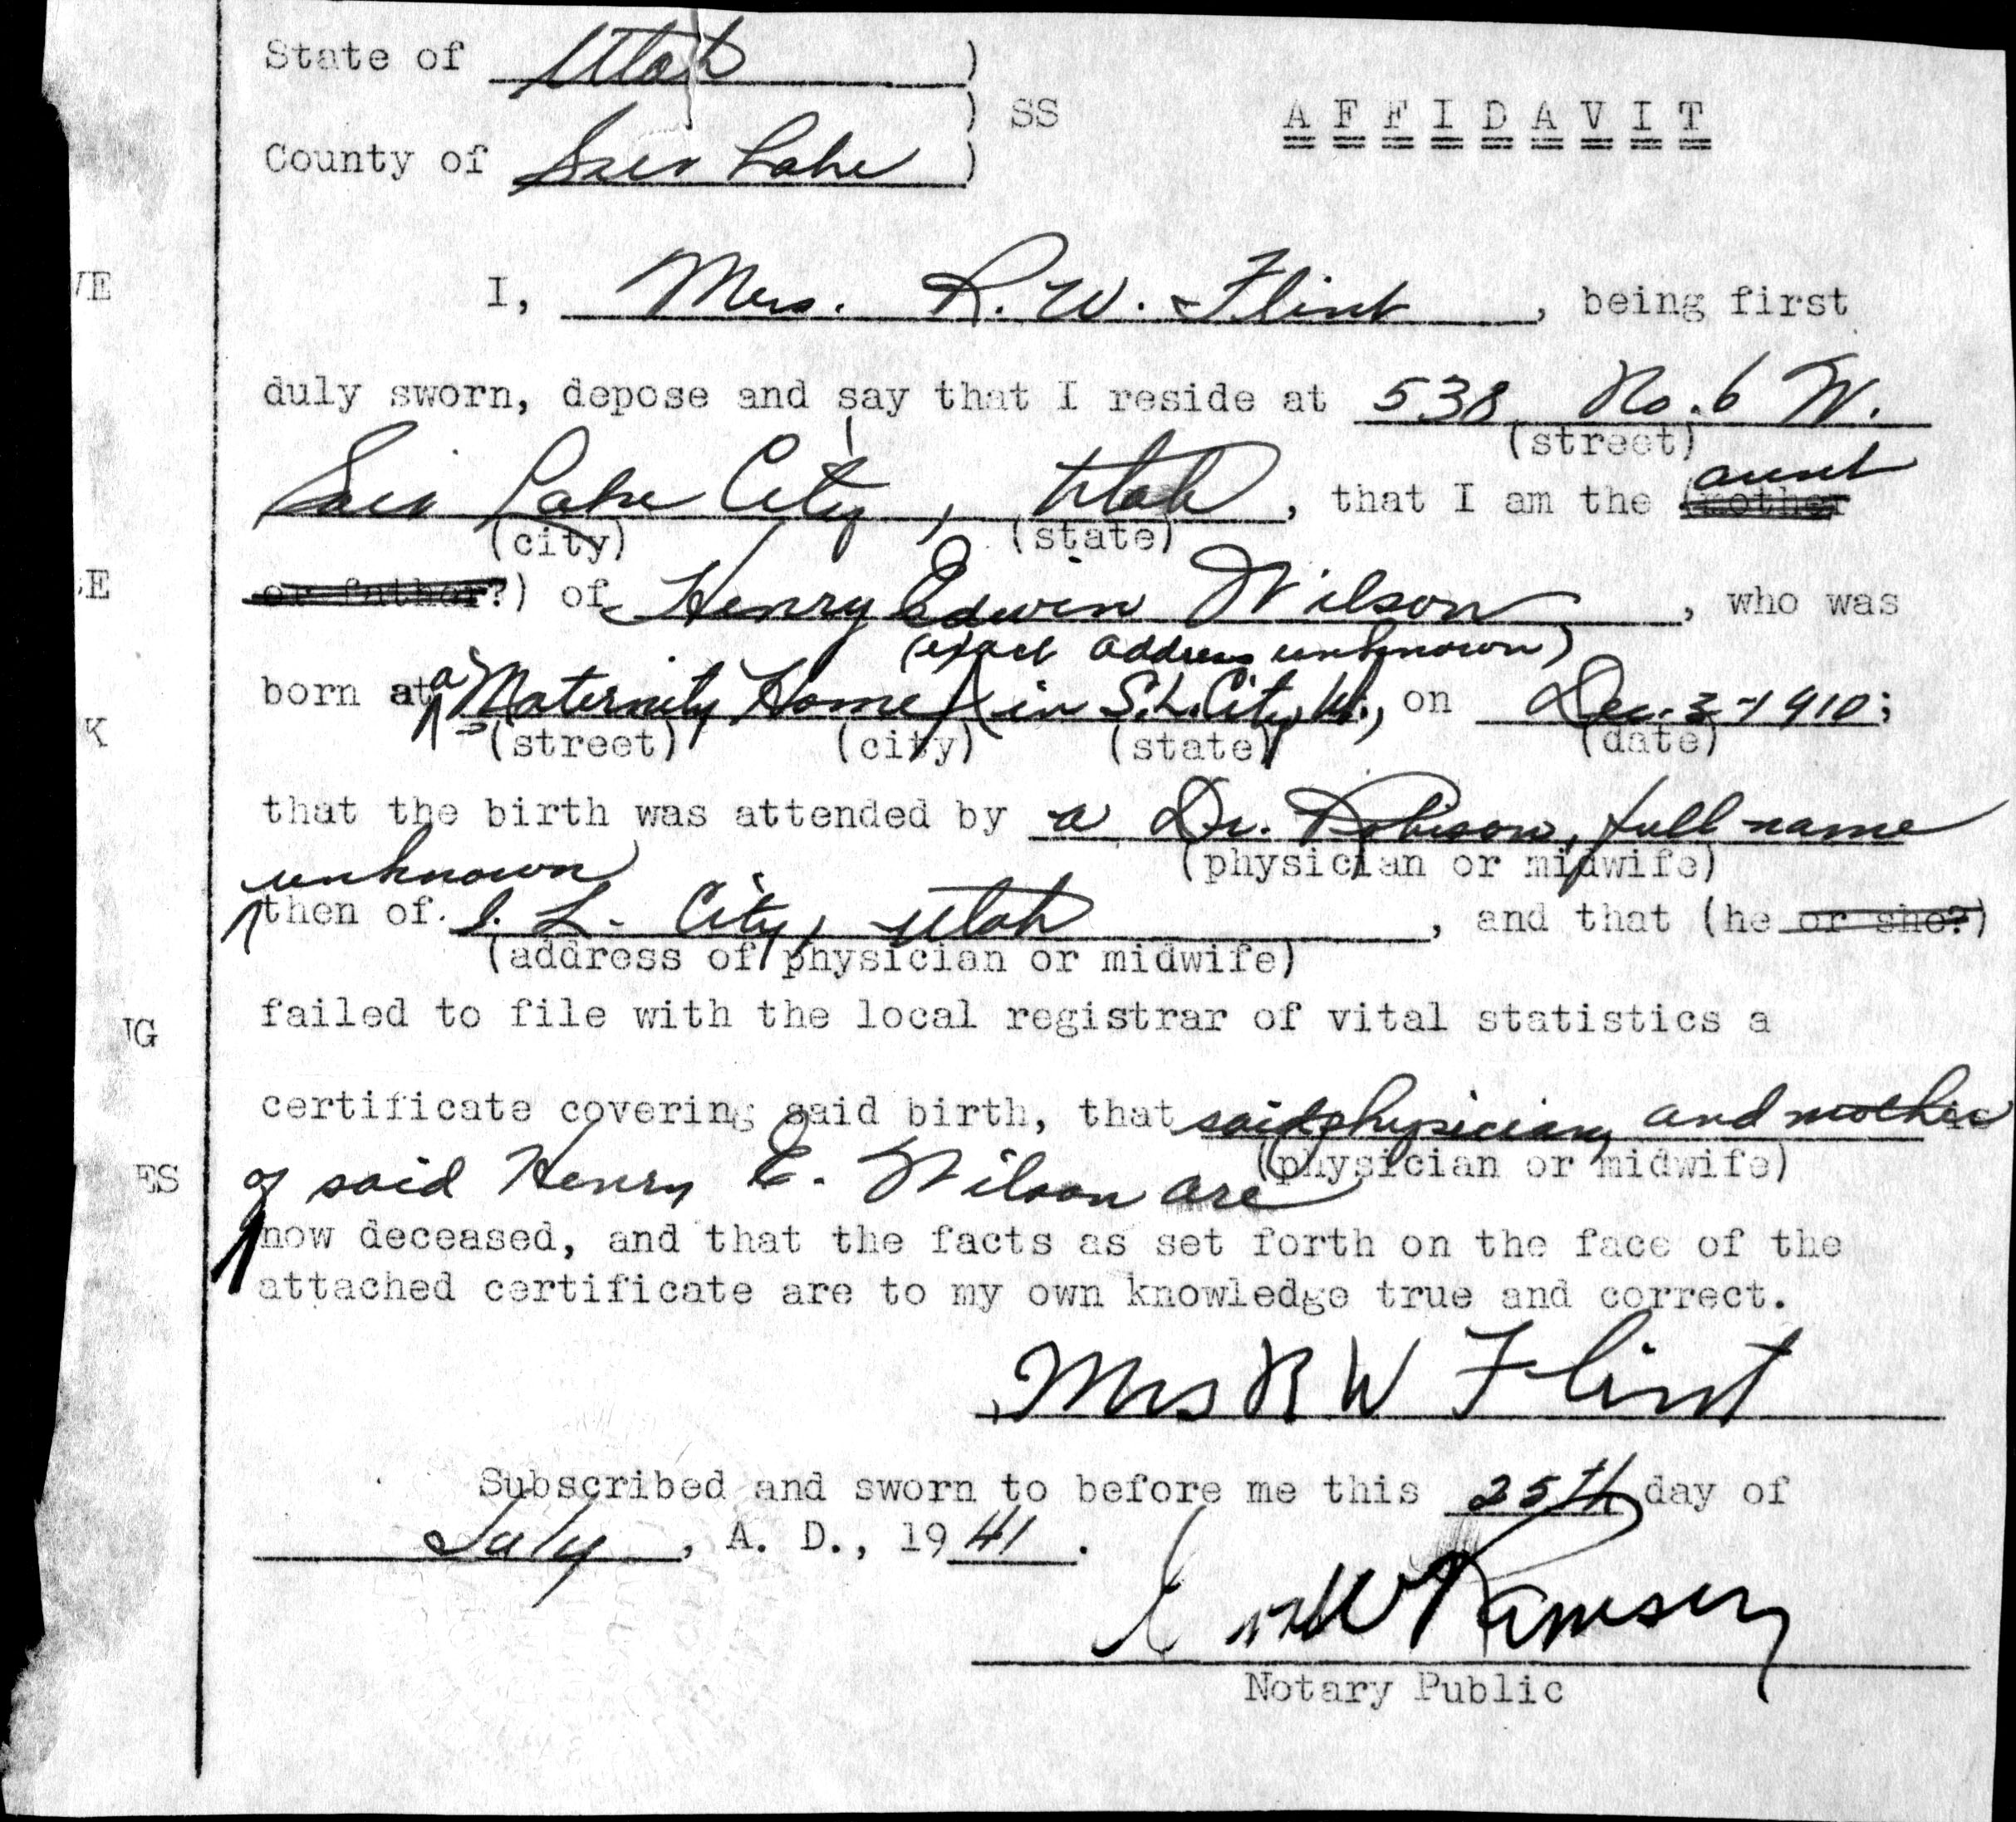 State of Utah )
) SS A F F I D A V I T
County of Salt Lake )
I, Mrs. R. W. Flint, being first
duly sworn, depose and say that I reside at 538 No. 6 W.
(street)
aunt
Salt Lake City, Utah, that I am the (mother
(city) (state)
or father?) of Henry Edwin Wilson, who was
(exact address unknown)
born at a Maternity Home in S.L. City, U., on Dec. 3-1910;
(street) (city) (state) (date)
that the birth was attended by a Dr. Robison, full name
unknown (physician or midwife)
then of S. L. City, Utah, and that (he or she?)
(address of physician or midwife)
failed to file with the local registrar of vital statistics a
certificate covering said birth, that said physician and mother
(physician or midwife)
of said Henry E. Wilson are
now deceased, and that the facts as set forth on the face of the
attached certificate are to my own knowledge true and correct.
Mrs R W Flint
Subscribed and sworn to before me this 25th day of
July, A. D., 1941.
W Ramsey
Notary Public
VE
E
K
NG
ES